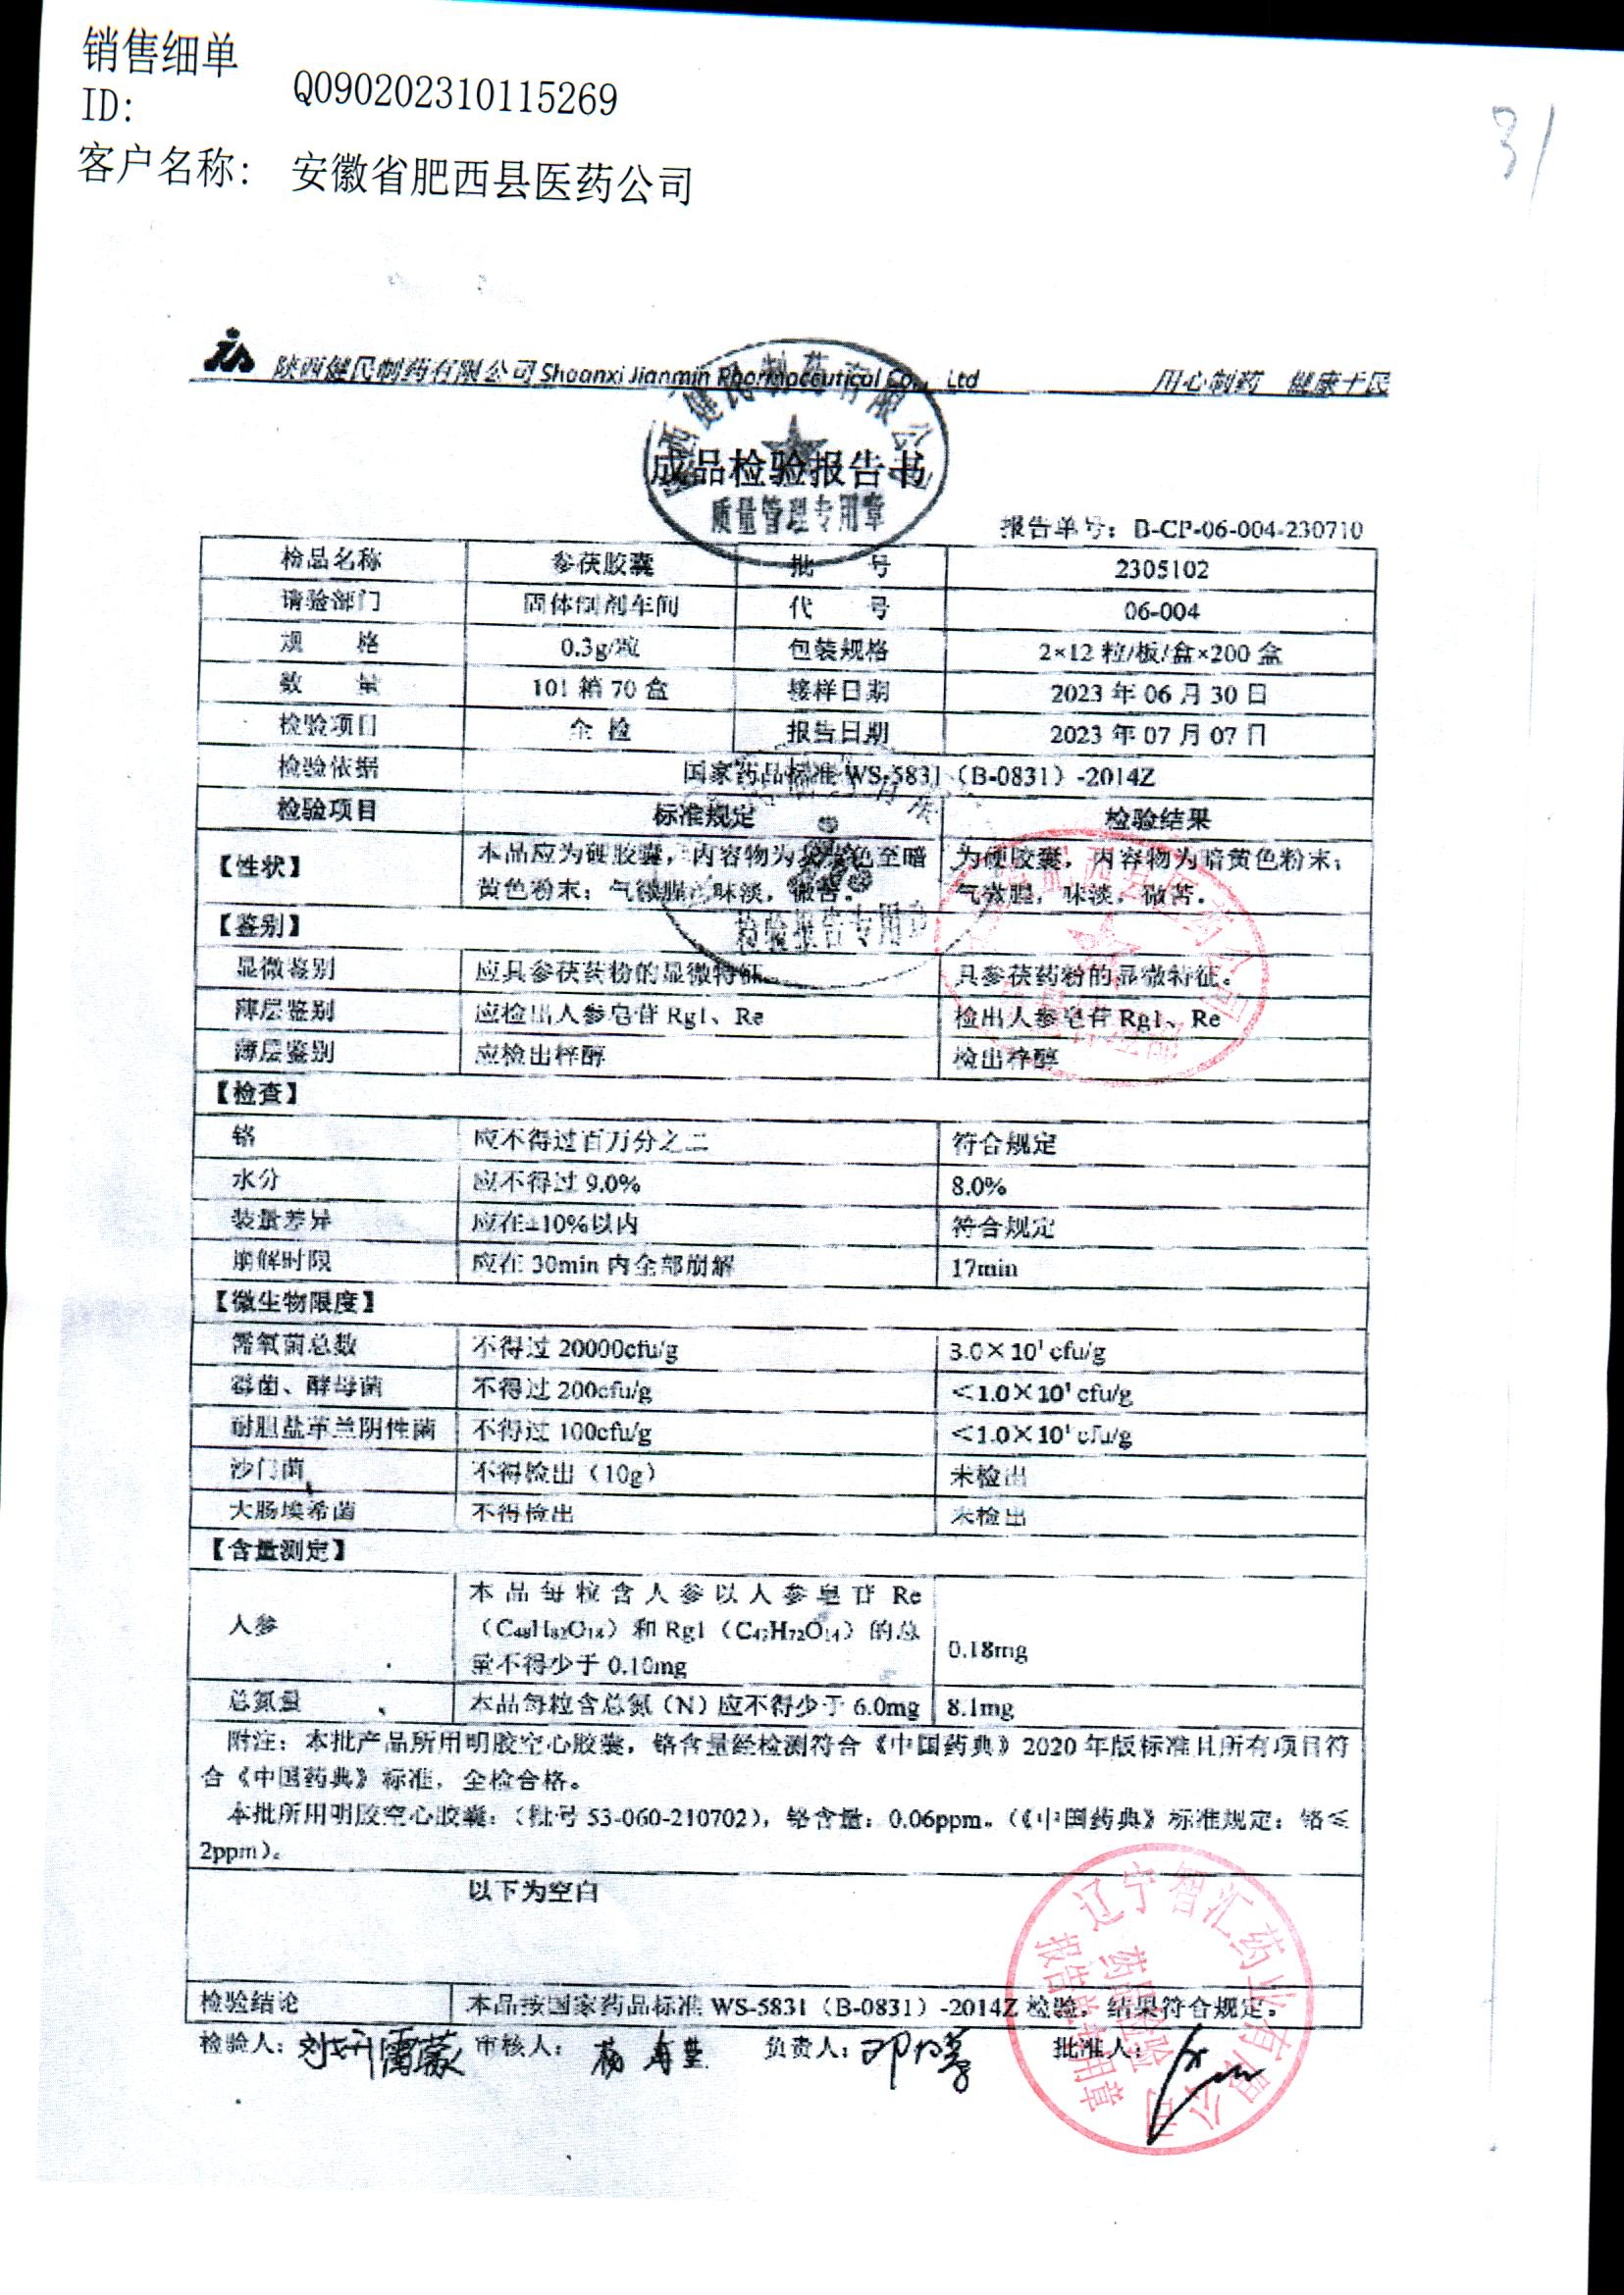 销售细单
ID:
Q090202310115269
客户名称: 安徽省肥西县医药公司
31
陕西健民制药有限公司 Shaanxi Jianmin Pharmaceutical Co., Ltd 用心制药 健康于民
成品检验报告书
质量管理专用章
报告单号：B-CP-06-004-230710
检品名称 参茯胶囊 批 号 2305102
请验部门 固体制剂车间 代 号 06-004
规 格 0.3g/粒 包装规格 2×12 粒/板/盒×200 盒
数 量 101 箱 70 盒 接样日期 2023 年 06 月 30 日
检验项目 全 检 报告日期 2023 年 07 月 07 日
检验依据 国家药品标准 WS-5831（B-0831）-2014Z
检验项目 标准规定 检验结果
【性状】 本品应为硬胶囊，内容物为 色至暗 为硬胶囊，内容物为暗黄色粉末；
黄色粉末；气微腥，味淡，微苦。 气微腥，味淡，微苦。
检验报告专用章
【鉴别】
显微鉴别 应具参茯药粉的显微特征。 具参茯药粉的显微特征。
薄层鉴别 应检出人参皂苷 Rg1、Re 检出人参皂苷 Rg1、Re
薄层鉴别 应检出梓醇 检出梓醇
【检查】
铬 应不得过百万分之二 符合规定
水分 应不得过 9.0% 8.0%
装量差异 应在±10%以内 符合规定
崩解时限 应在 30min 内全部崩解 17min
【微生物限度】
需氧菌总数 不得过 20000cfu/g 3.0×10¹ cfu/g
霉菌、酵母菌 不得过 200cfu/g ＜1.0×10¹ cfu/g
耐胆盐革兰阴性菌 不得过 100cfu/g ＜1.0×10¹ cfu/g
沙门菌 不得检出（10g） 未检出
大肠埃希菌 不得检出 未检出
【含量测定】
人参 本品每粒含人参以人参皂苷 Re
（C₄₈H₈₂O₁₈）和 Rg1（C₄₂H₇₂O₁₄）的总
量不得少于 0.10mg 0.18mg
总氮量 本品每粒含总氮（N）应不得少于 6.0mg 8.1mg
附注：本批产品所用明胶空心胶囊，铬含量经检测符合《中国药典》2020 年版标准且所有项目符
合《中国药典》标准，全检合格。
本批所用明胶空心胶囊：（批号 53-060-210702），铬含量：0.06ppm。（《中国药典》标准规定：铬≤
2ppm）。
以下为空白
辽宁智汇药业有限公司
药品检验
报告单专用章
检验结论 本品按国家药品标准 WS-5831（B-0831）-2014Z 检验，结果符合规定。
检验人： 审核人： 负责人： 批准人：